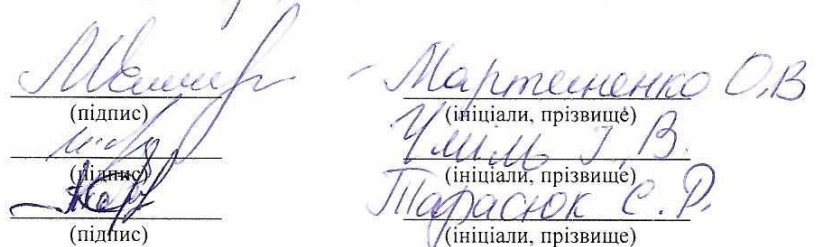 Мартиненко О.В
(підпис) (ініціали, прізвище)
І.В.
(підпис) (ініціали, прізвище)
Тарасюк С.Р.
(підпис) (ініціали, прізвище)